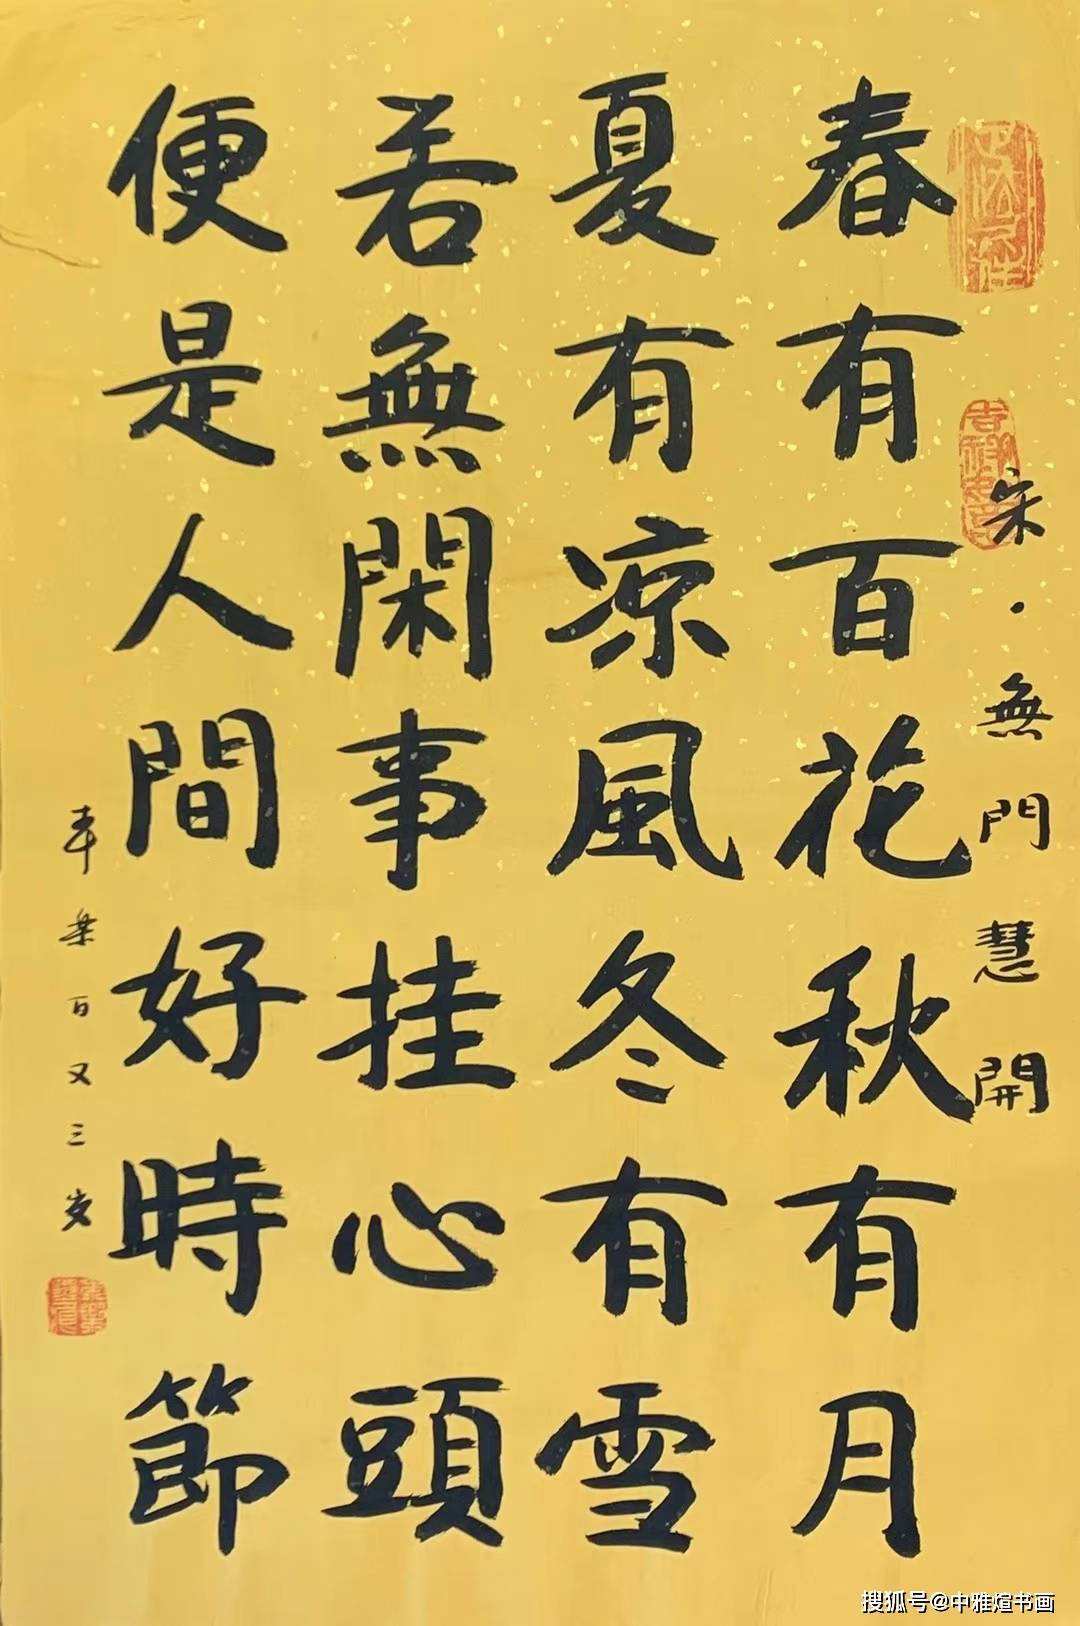 宋·無門慧開
春有百花秋有月
夏有凉風冬有雪
若無閑事挂心頭
便是人間好時節
百又三岁
搜狐号@中雅煊书画